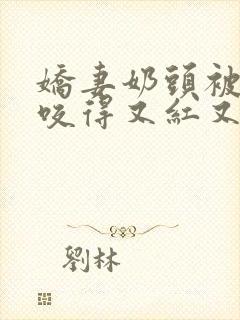 嬌妻奶頭被
咬得又紅又
劉林